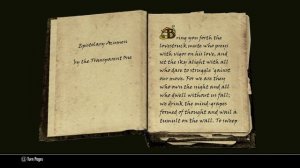 Epistolary Acumen
by the Transparent One
Bring you forth the
lovestruck mute who preys
with vigor on his love, and
set the sky alight with all
who dare to struggle against
our move. For we are they
who own the night and all
who dwell without us fall;
we drink the mind-grapes
formed of thought and wail a
tumult on the wall. To sweep
Turn Pages